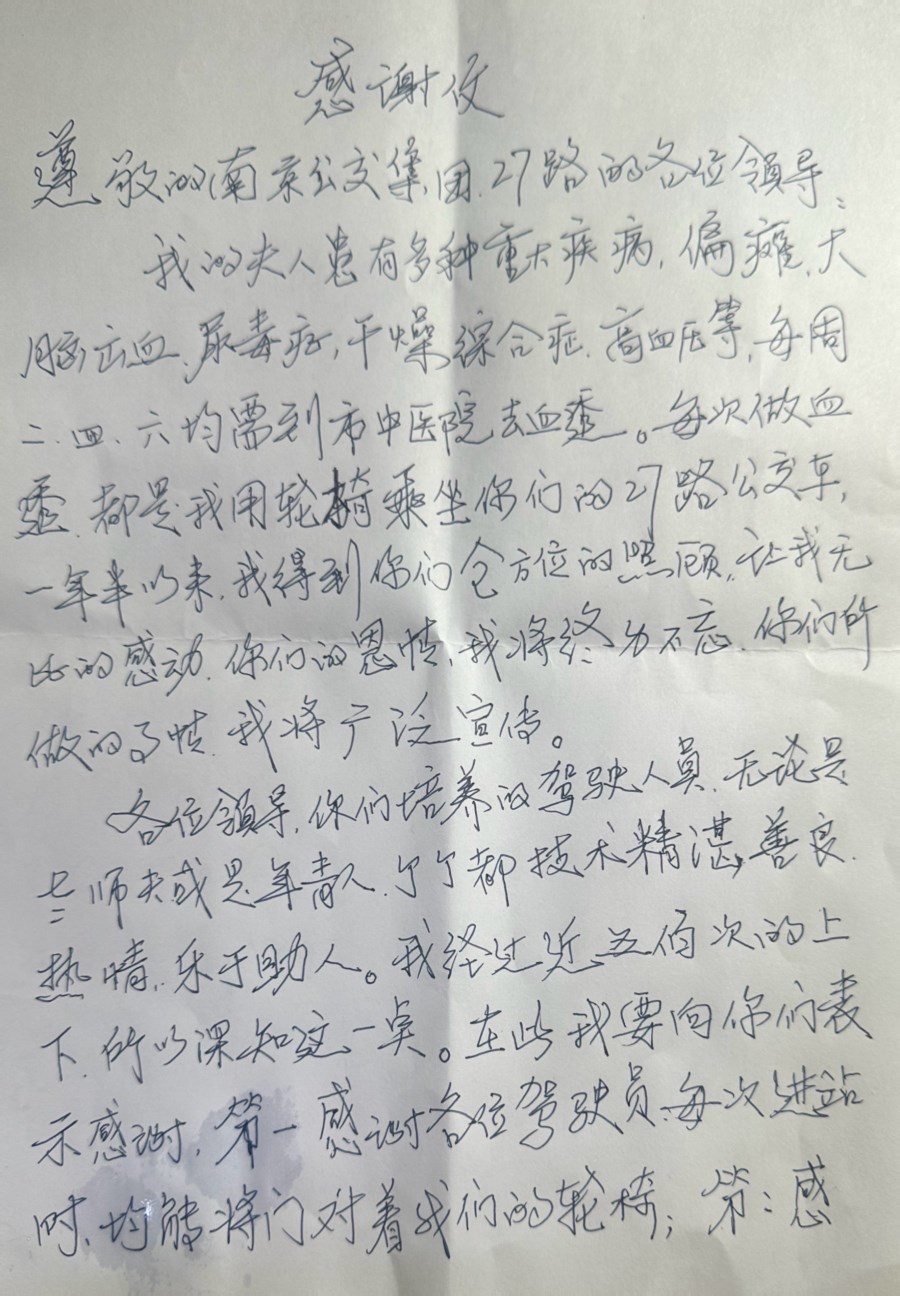 感谢信
尊敬的南京公交集团27路的各位领导:
我的夫人患有多种重大疾病,偏瘫、大
脑出血、尿毒症、干燥综合症、高血压等,每周
二、四、六均需到市中医院去血透。每次做血
透、都是我用轮椅乘坐你们的27路公交车,
一年半以来,我得到你们全方位的照顾,让我无
比的感动、你们的恩情,我将终力不忘、你们所
做的事情、我将广泛宣传。
各位领导,你们培养的驾驶人员、无论是
老师夫或是年青人、个个都技术精湛,善良、
热情、乐于助人。我经过近五佰次的上
下、所以深知这一点。在此我要向你们表
示感谢,第一感谢各位驾驶员、每次进站
时、均能将门对着我们的轮椅;第二感